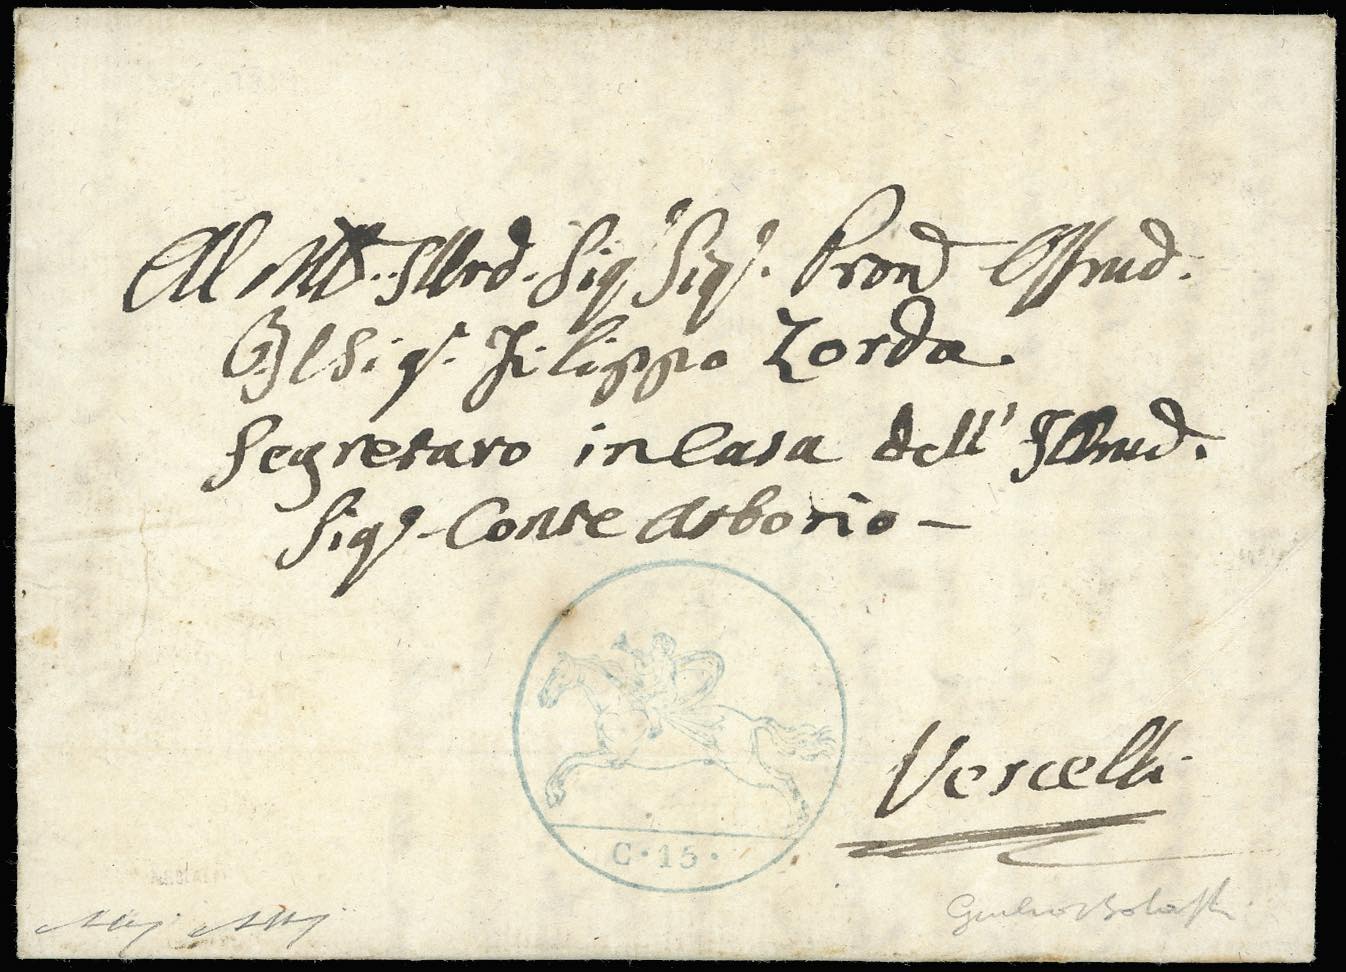 Al M.to Illrd. Sigr Sigr. Pron Ossrud.
Il Sigr. Filippo Zorda.
Segretaro in Casa dell' Illrud.
Sigr. Conte Arborio -
C·15·
Vercelli
Giulio Bolaffi